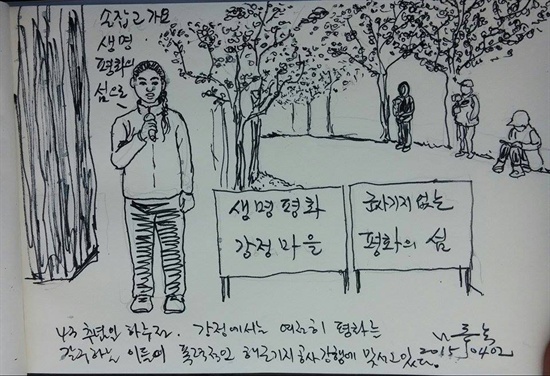 손잡고 가요
생명
평화의
섬으로
생명평화
강정마을
군사기지 없는
평화의 섬
4·3 추념일 하루전. 강정에서는 여전히 평화를
갈구하는 이들이 폭력적인 해군기지 공사강행에 맞서고있다.
2015. 04 02